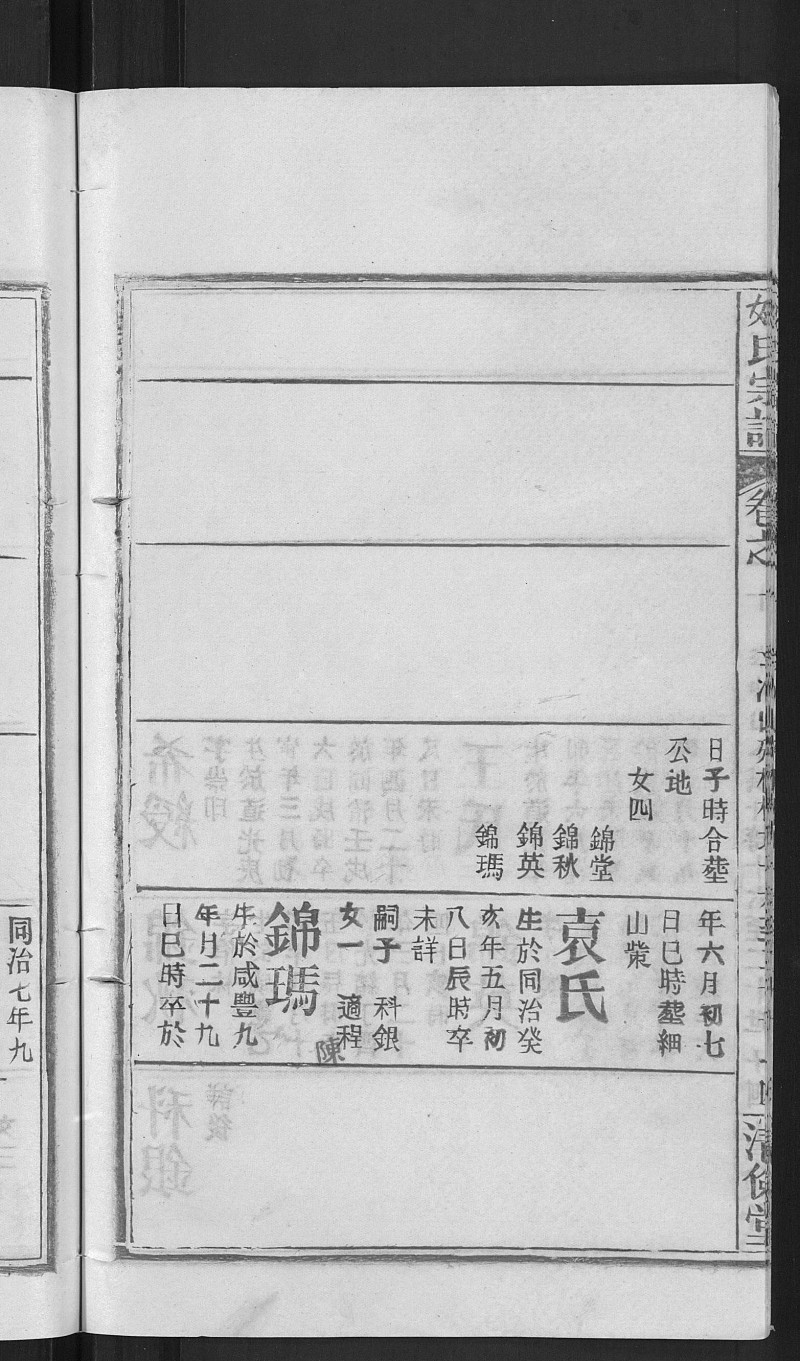 氏宗譜
卷之
日子時合塟
公地
女四
錦堂
錦秋
錦英
錦瑪
年六月初七
日巳時塟細
山棠
袁氏
生於同治癸
亥年五月初
八日辰時卒
未詳
嗣子 科銀
女一 適程
陳
錦瑪
生於咸豐九
年月二十九
日巳時卒於
同治七年九